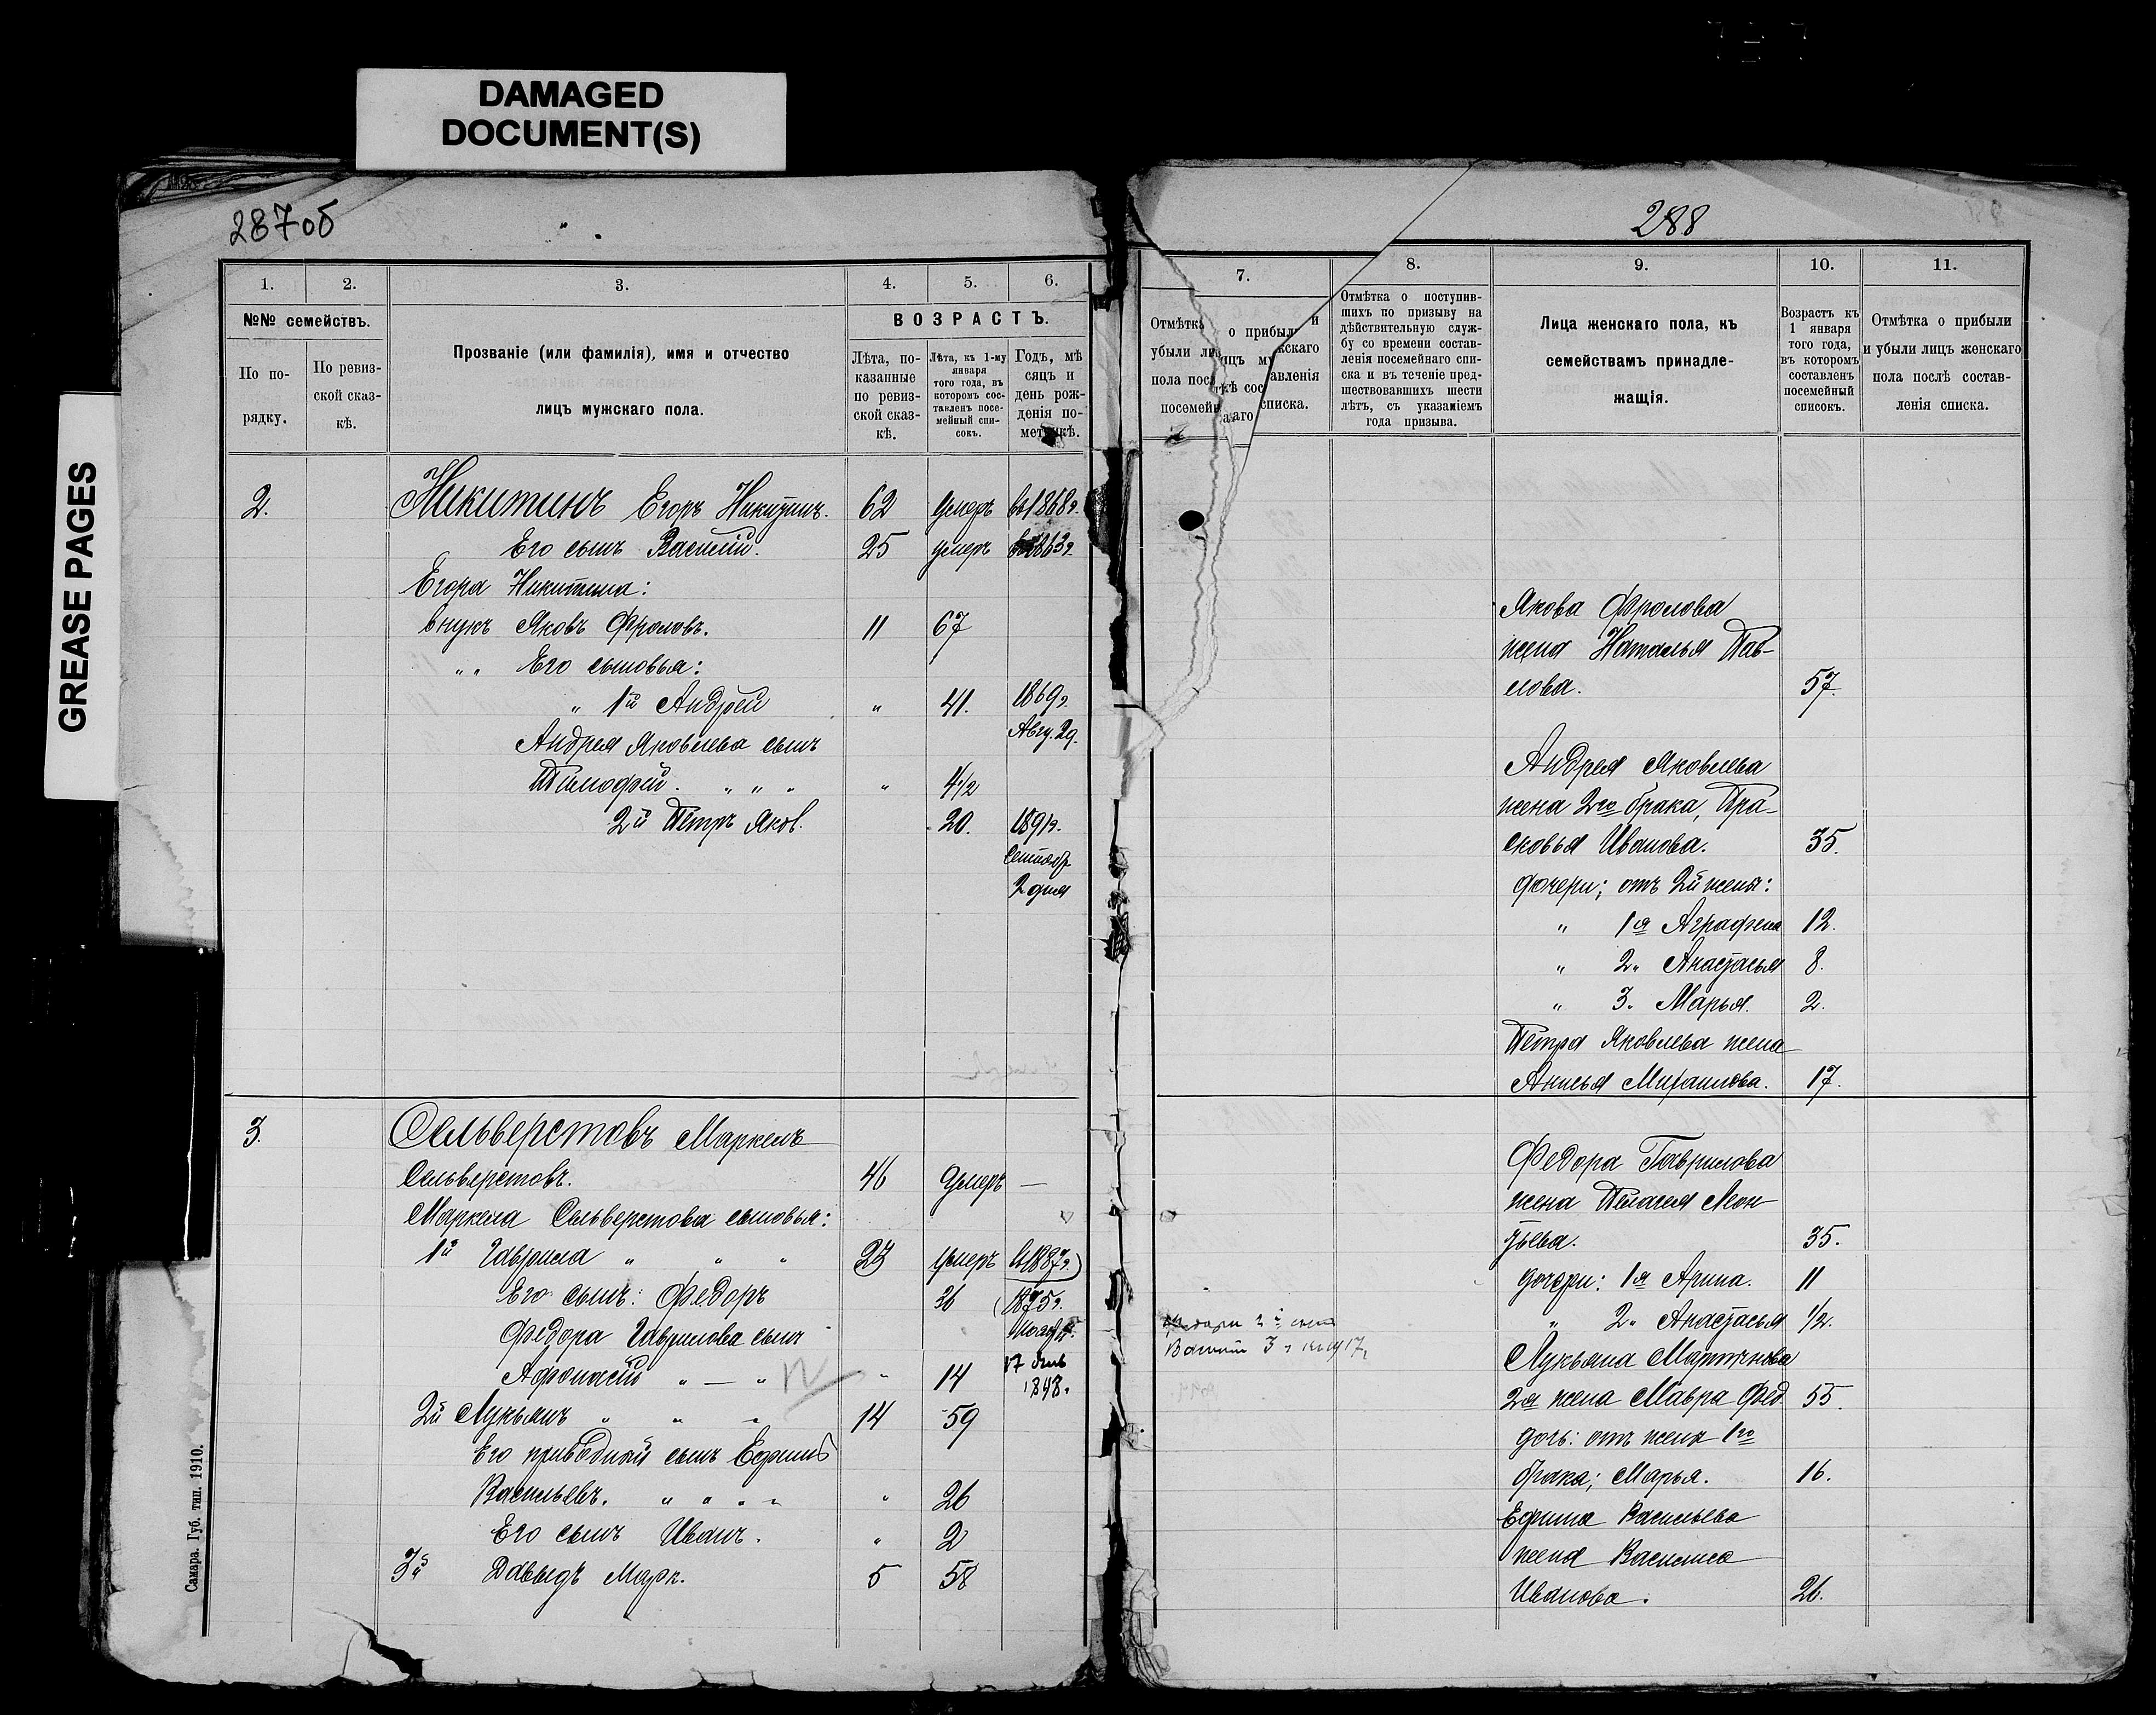 DAMAGED
DOCUMENT(S)
GREASE PAGES
287об
1.
2.
3.
4.
5.
6.
№№ семействъ.
По по-
рядку.
По ревиз-
ской сказ-
кѣ.
Прозваніе (или фамилія), имя и отчество
лицъ мужскаго пола.
ВОЗРАСТЪ.
Лѣта, по-
казанные
по ревиз-
ской сказ-
кѣ.
Лѣта, къ 1-му
января
того года, въ
которомъ сос-
тавленъ посе-
мейный спи-
сокъ.
Годъ, мѣ
сяцъ и
день рож-
денія по-
метрикѣ.
2. Никитинъ Егоръ Никитин. 62 умеръ въ 1868г.
Его сынъ Василій. 25 умеръ въ 1863г.
Егора Никитина:
внукъ Яковъ Фроловъ. 11 67
„ „ Его сыновья:
„ 1й Андрей „ 41. 1869г.
Авгу. 29.
Андрея Яковлева сынъ
Тимофей. „ „ „ „ 4 1/2
2й Петръ Яков. 20. 1891г.
Сентябр.
2 дня
3. Сельверстовъ Маркелъ
Сельверстовъ. 46 умеръ —
Маркела Сельверстова сыновья:
1й Гаврила „ „ „ 23 умеръ въ 1887г.
Его сынъ: Федоръ 36 1875г.
Федора Гаврилова сынъ
Афонасій „ — „ „ 14 17 Янв
1898.
2й Лукьянъ „ „ „ 14 59
Его приводный сынъ Ефимъ
Васильевъ. „ „ „ „ „ 26
Его сынъ Иванъ. „ 2
3й Давыдъ Марк. 5 58
Самара. Губ. тип. 1910.
288
7.
8.
9.
10.
11.
Отмѣтка о прибыли и
убыли лицъ мужскаго
пола послѣ составленія
посемейнаго списка.
Отмѣтка о поступив-
шихъ по призыву на
дѣйствительную служ-
бу со времени состав-
ленія посемейнаго спи-
ска и въ теченіе пред-
шествовавшихъ шести
лѣтъ, съ указаніемъ
года призыва.
Лица женскаго пола, къ
семействамъ принадле-
жащія.
Возрастъ къ
1 января
того года,
въ которомъ
составленъ
посемейный
списокъ.
Отмѣтка о прибыли
и убыли лицъ женскаго
пола послѣ состав-
ленія списка.
Якова Фролова
жена Наталья Пав-
лова. 57.
Андрея Яковлева
жена 2го брака, Пра-
сковья Иванова. 35.
дочери; отъ 2й жены:
„ 1я Аграфена 12.
„ 2„ Анастасья 8.
„ 3„ Марья. 2.
Петра Яковлева жена
Анисья Михаилова. 17.
Федора Гаврилова
жена Пелагея Леон
тьева. 35.
дочери: 1я Арина. 11
„ 2„ Анастасья 1/2.
Федора 2й сынъ
Василій 3
Лукьяна Мартынова
2я жена Мавра Фед. 55.
дочь: отъ жены 1го
брака; Марья. 16.
Ефима Васильева
жена Василиса
Иванова. 26.